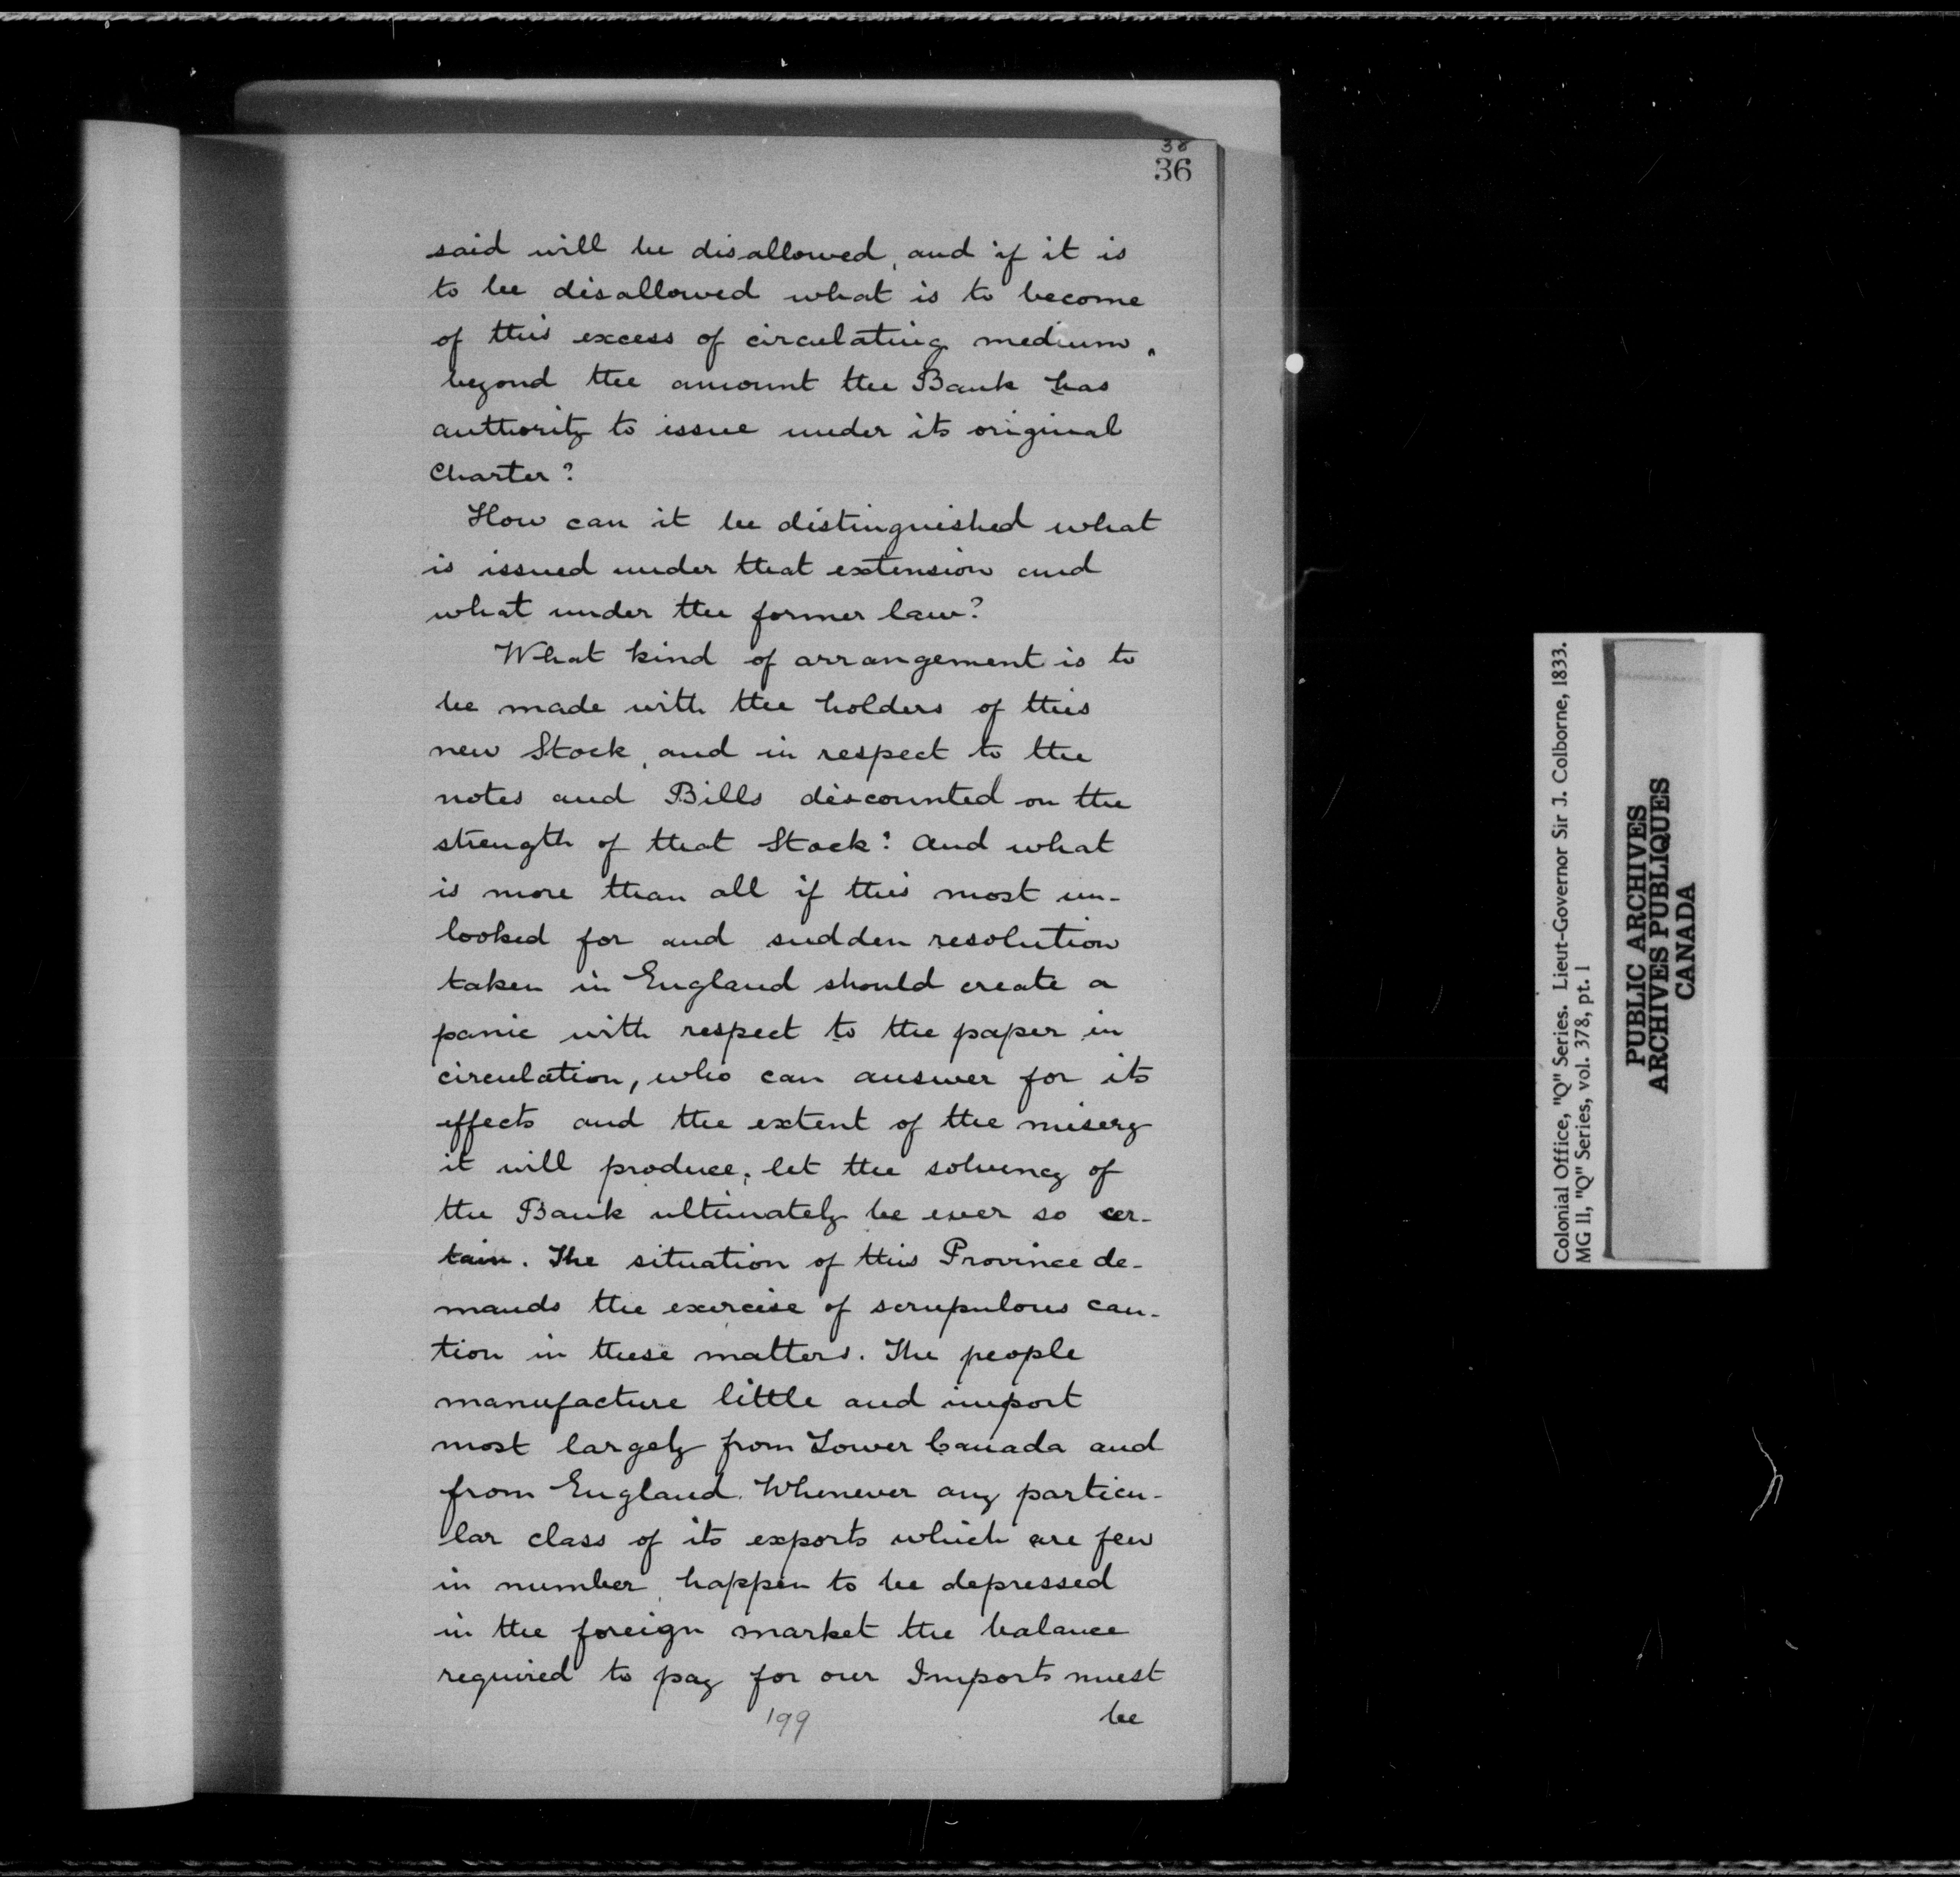 38
36
said will be disallowed, and if it is
to be disallowed what is to become
of this excess of circulating medium,
beyond the amount the Bank has
authority to issue under its original
Charter?
How can it be distinguished what
is issued under that extension and
what under the former law?
What kind of arrangement is to
be made with the holders of this
new Stock, and in respect to the
notes and Bills discounted on the
strength of that Stock? And what
is more than all if this most un-
looked for and sudden resolution
taken in England should create a
panic with respect to the paper in
circulation, who can answer for its
effects and the extent of the misery
it will produce, let the solvency of
the Bank ultimately be ever so cer-
tain. The situation of this Province de-
mands the exercise of scrupulous cau-
tion in these matters. The people
manufacture little and import
most largely from Lower Canada and
from England. Whenever any particu-
lar class of its exports which are few
in number, happen to be depressed
in the foreign market the balance
required to pay for our Imports must
199
be
Colonial Office, "Q" Series. Lieut-Governor Sir J. Colborne, 1833.
MG 11, "Q" Series, vol. 378, pt. 1
PUBLIC ARCHIVES
ARCHIVES PUBLIQUES
CANADA